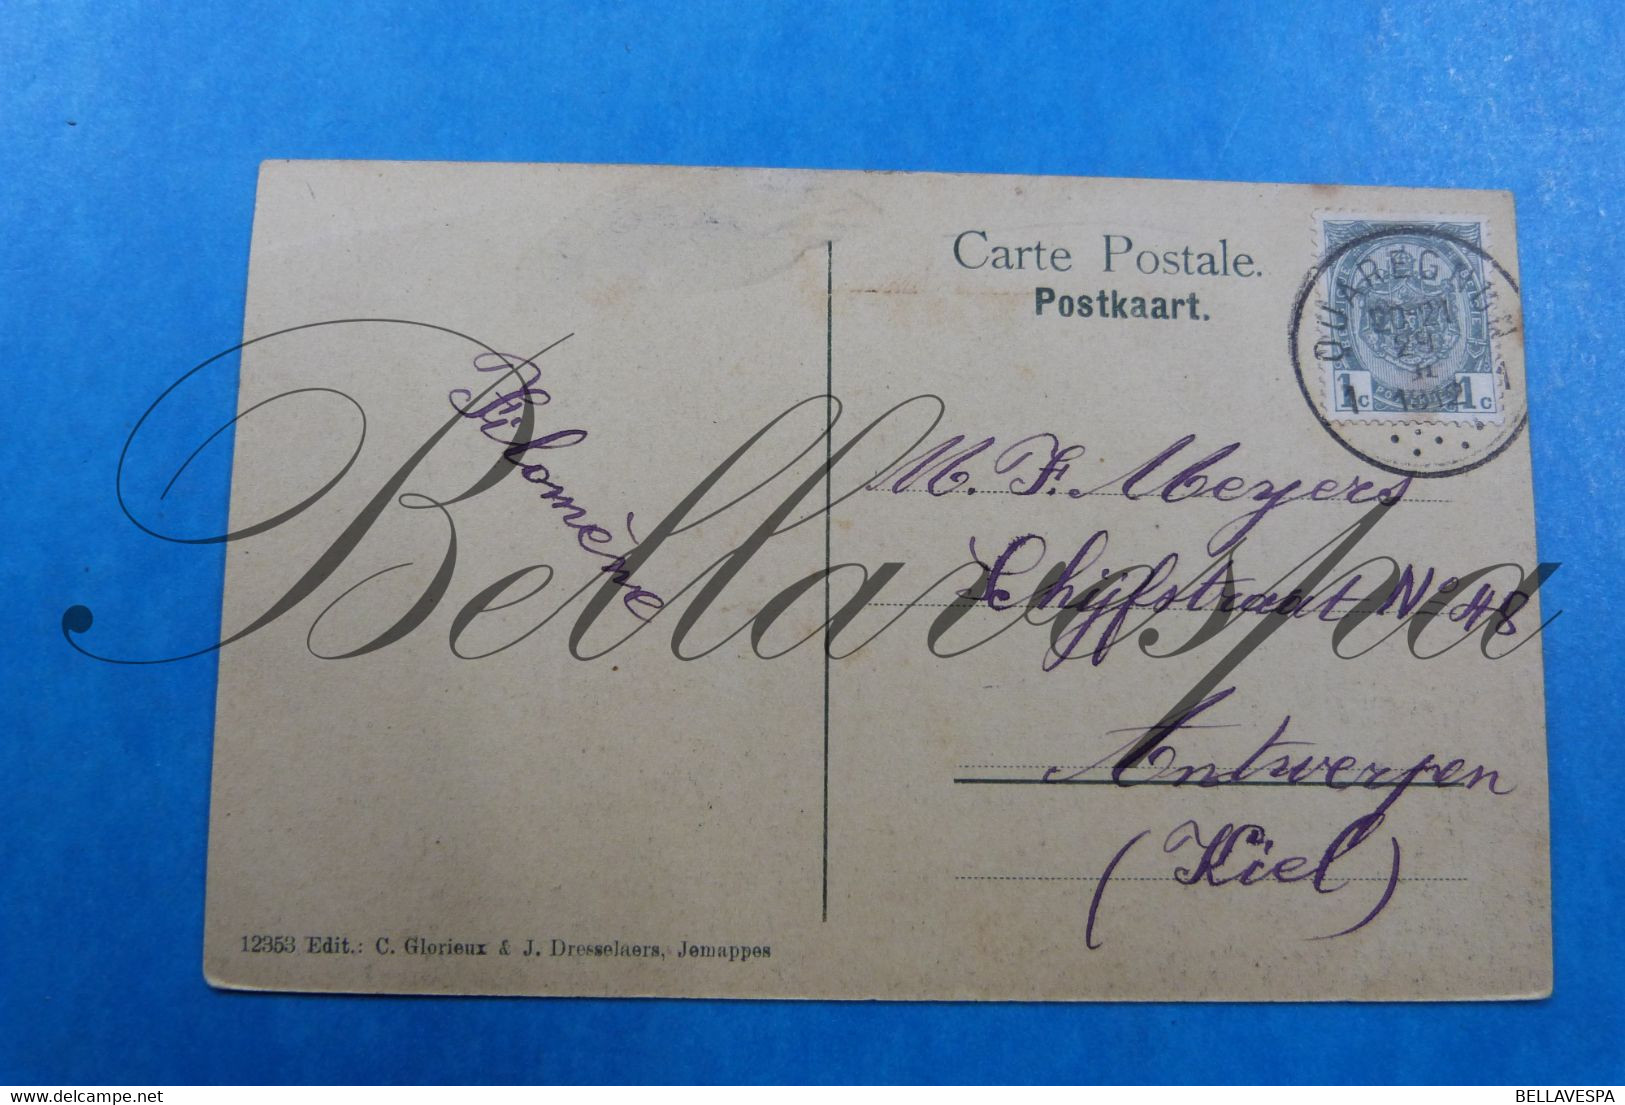 Carte Postale.
Postkaart.
QUAREGNON
20-21
1912
1
1c
1c
Filomène
M. F. Meyers
Schijfstraat No 48
Antwerpen
(Kiel)
12353 Edit.: C. Glorieux & J. Dresselaers, Jemappes
Bellavespa
BELLAVESPA